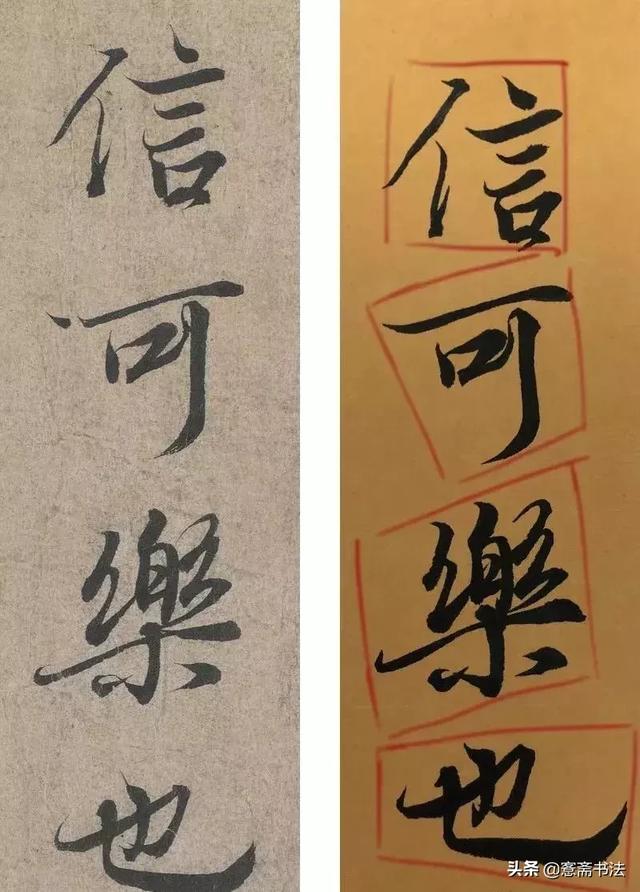 信可樂也
信可樂也
头条 @愙斋书法